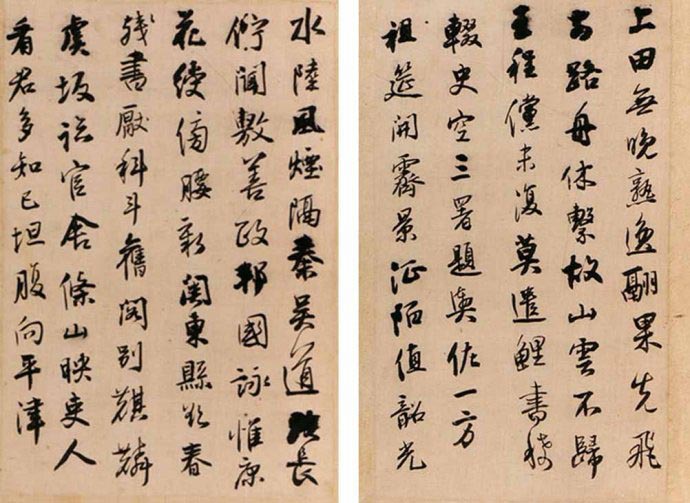 上田無晚熟逸翮果先飛
路舟休繫故山雲不歸
王程儻未復莫遣鯉書稀
輟史空三署題輿佐一方
祖筵開霽景征陌值韶光
水陸風煙隔秦吳道路長
佇聞敷善政邦國詠惟康
花綬傍腰新關東縣欲春
殘書厭科斗舊閣別麒麟
虞坂臨官舍條山映吏人
看君多知已坦腹向平津